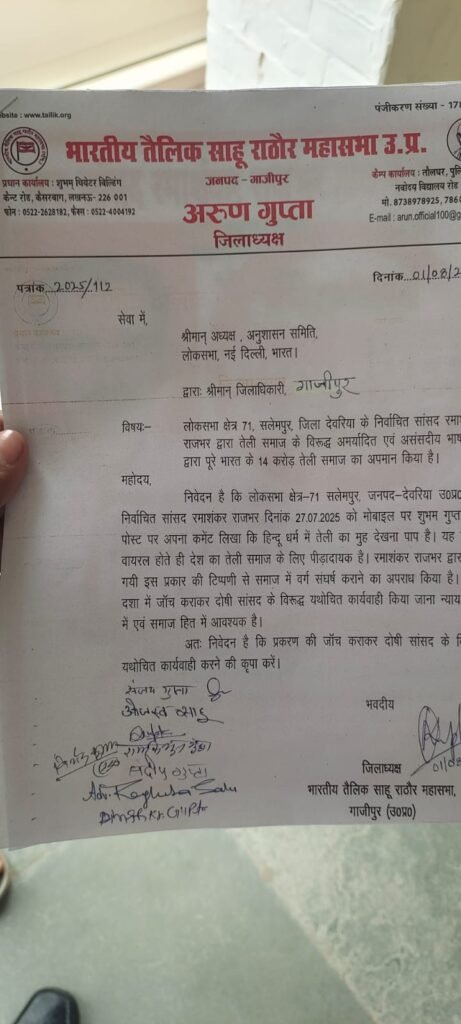 bsite : www.tailik.org
पंजीकरण संख्या - 178
भारतीय तैलिक साहू राठौर महासभा उ.प्र.
प्रधान कार्यालय : शुभम थियेटर बिल्डिंग
केन्ट रोड, केसरबाग, लखनऊ- 226 001
फोन : 0522-2628182, फैक्स : 0522-4004192
जनपद - गाजीपुर
अरुण गुप्ता
जिलाध्यक्ष
केम्प कार्यालय : तौलघर, पुलि
नवोदय विद्यालय रोड
मो. 8738978925, 7860
E-mail : arun.official100@g
पत्रांक 2025/112
दिनांक 01/08/2
सेवा में,
श्रीमान् अध्यक्ष , अनुशासन समिति,
लोकसभा, नई दिल्ली, भारत।
द्वाराः श्रीमान् जिलाधिकारी, गाजीपुर
विषयः– लोकसभा क्षेत्र 71, सलेमपुर, जिला देवरिया के निर्वाचित सांसद रमा
राजभर द्वारा तेली समाज के विरूद्ध अमर्यादित एवं असंसदीय भाष
द्वारा पूरे भारत के 14 करोड़ तेली समाज का अपमान किया है।
महोदय,
निवेदन है कि लोकसभा क्षेत्र–71 सलेमपुर, जनपद-देवरिया उ0प्र0
निर्वाचित सांसद रमाशंकर राजभर दिनांक 27.07.2025 को मोबाइल पर शुभम गुप्त
पोस्ट पर अपना कमेंट लिखा कि हिन्दू धर्म में तेली का मुह देखना पाप है। यह
वायरल होते ही देश का तेली समाज के लिए पीड़ादायक है। रमाशंकर राजभर द्वार
गयी इस प्रकार की टिप्पणी से समाज में वर्ग संघर्ष कराने का अपराध किया है।
दशा में जाँच कराकर दोषी सांसद के विरूद्ध यथोचित कार्यवाही किया जाना न्याय
में एवं समाज हित में आवश्यक है।
अतः निवेदन है कि प्रकरण की जाँच कराकर दोषी सांसद के वि
यथोचित कार्यवाही करने की कृपा करें।
संजय गुप्ता
भवदीय
ओजस्व साहू
प्रदीप गुप्ता
जिलाध्यक्ष 01/08
Adv. Raghubar Sahu
भारतीय तैलिक साहू राठौर महासभा,
गाजीपुर (उ0प्र0)